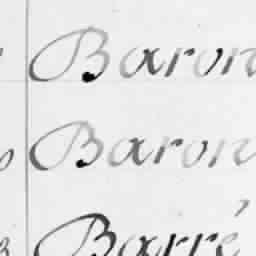 Baron
Baron
Barré